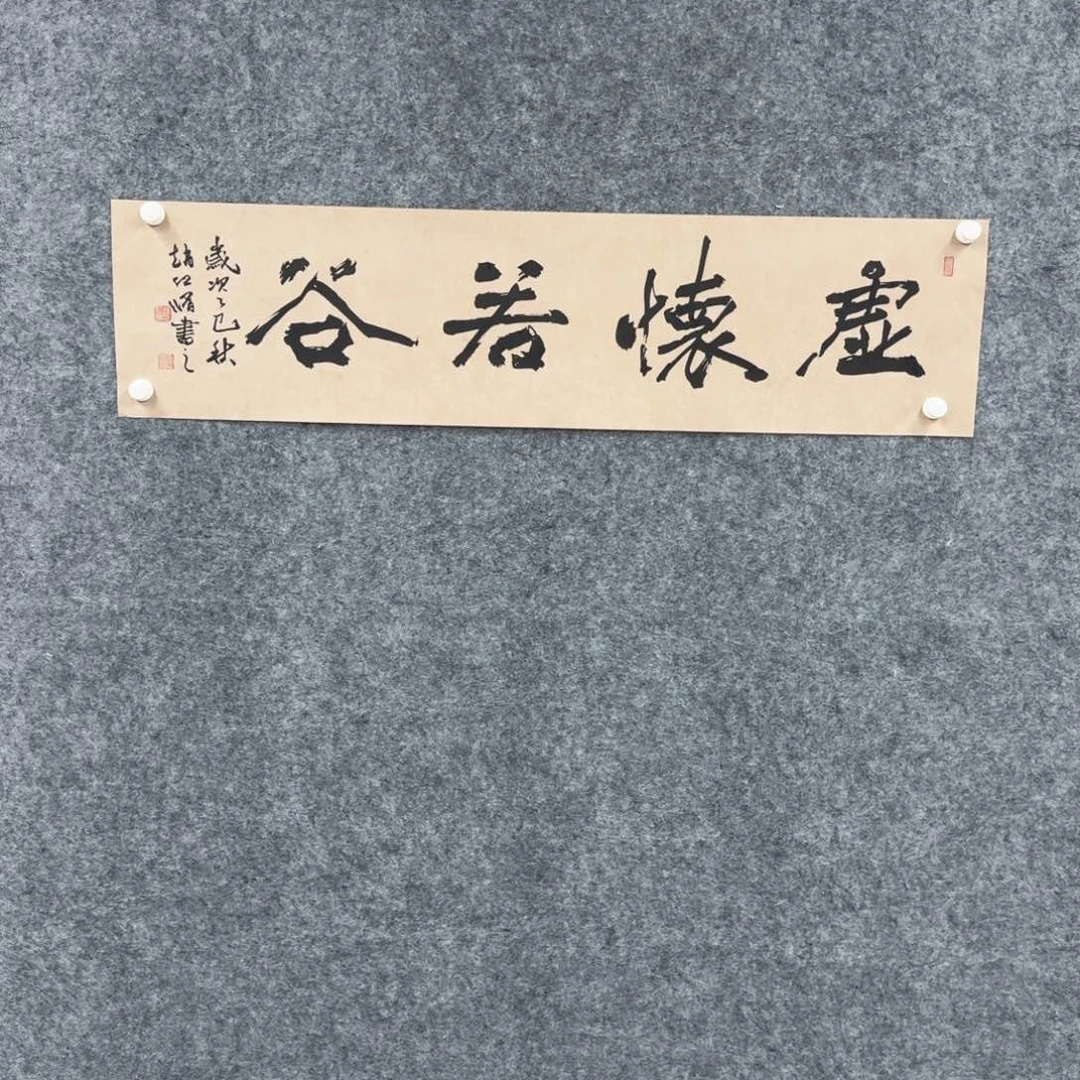 虛懷若谷
歲次乙巳秋
趙江書之